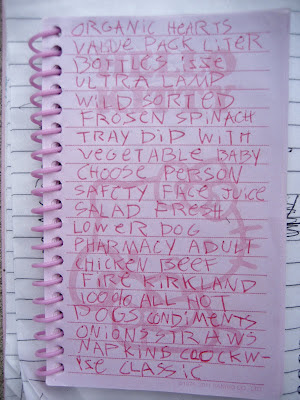 ORGANIC HEARTS
VALUE PACK LITER
BOTTLES ISSE
ULTRA LAMP
WILD SORTED
FROSEN SPINACH
TRAY DID WITH
VEGETABLE BABY
CHOOSE PERSON
SAFETY FACE JUICE
SALAD FRESH
LOWER DOG
PHARMACY ADULT
CHICKEN BEEF
FIRE KIRKLAND
100% ALL NOT
DOGS CONDIMENTS
ONIONS STRAWS
NAPKINS COCKW-
ISE CLASSIC